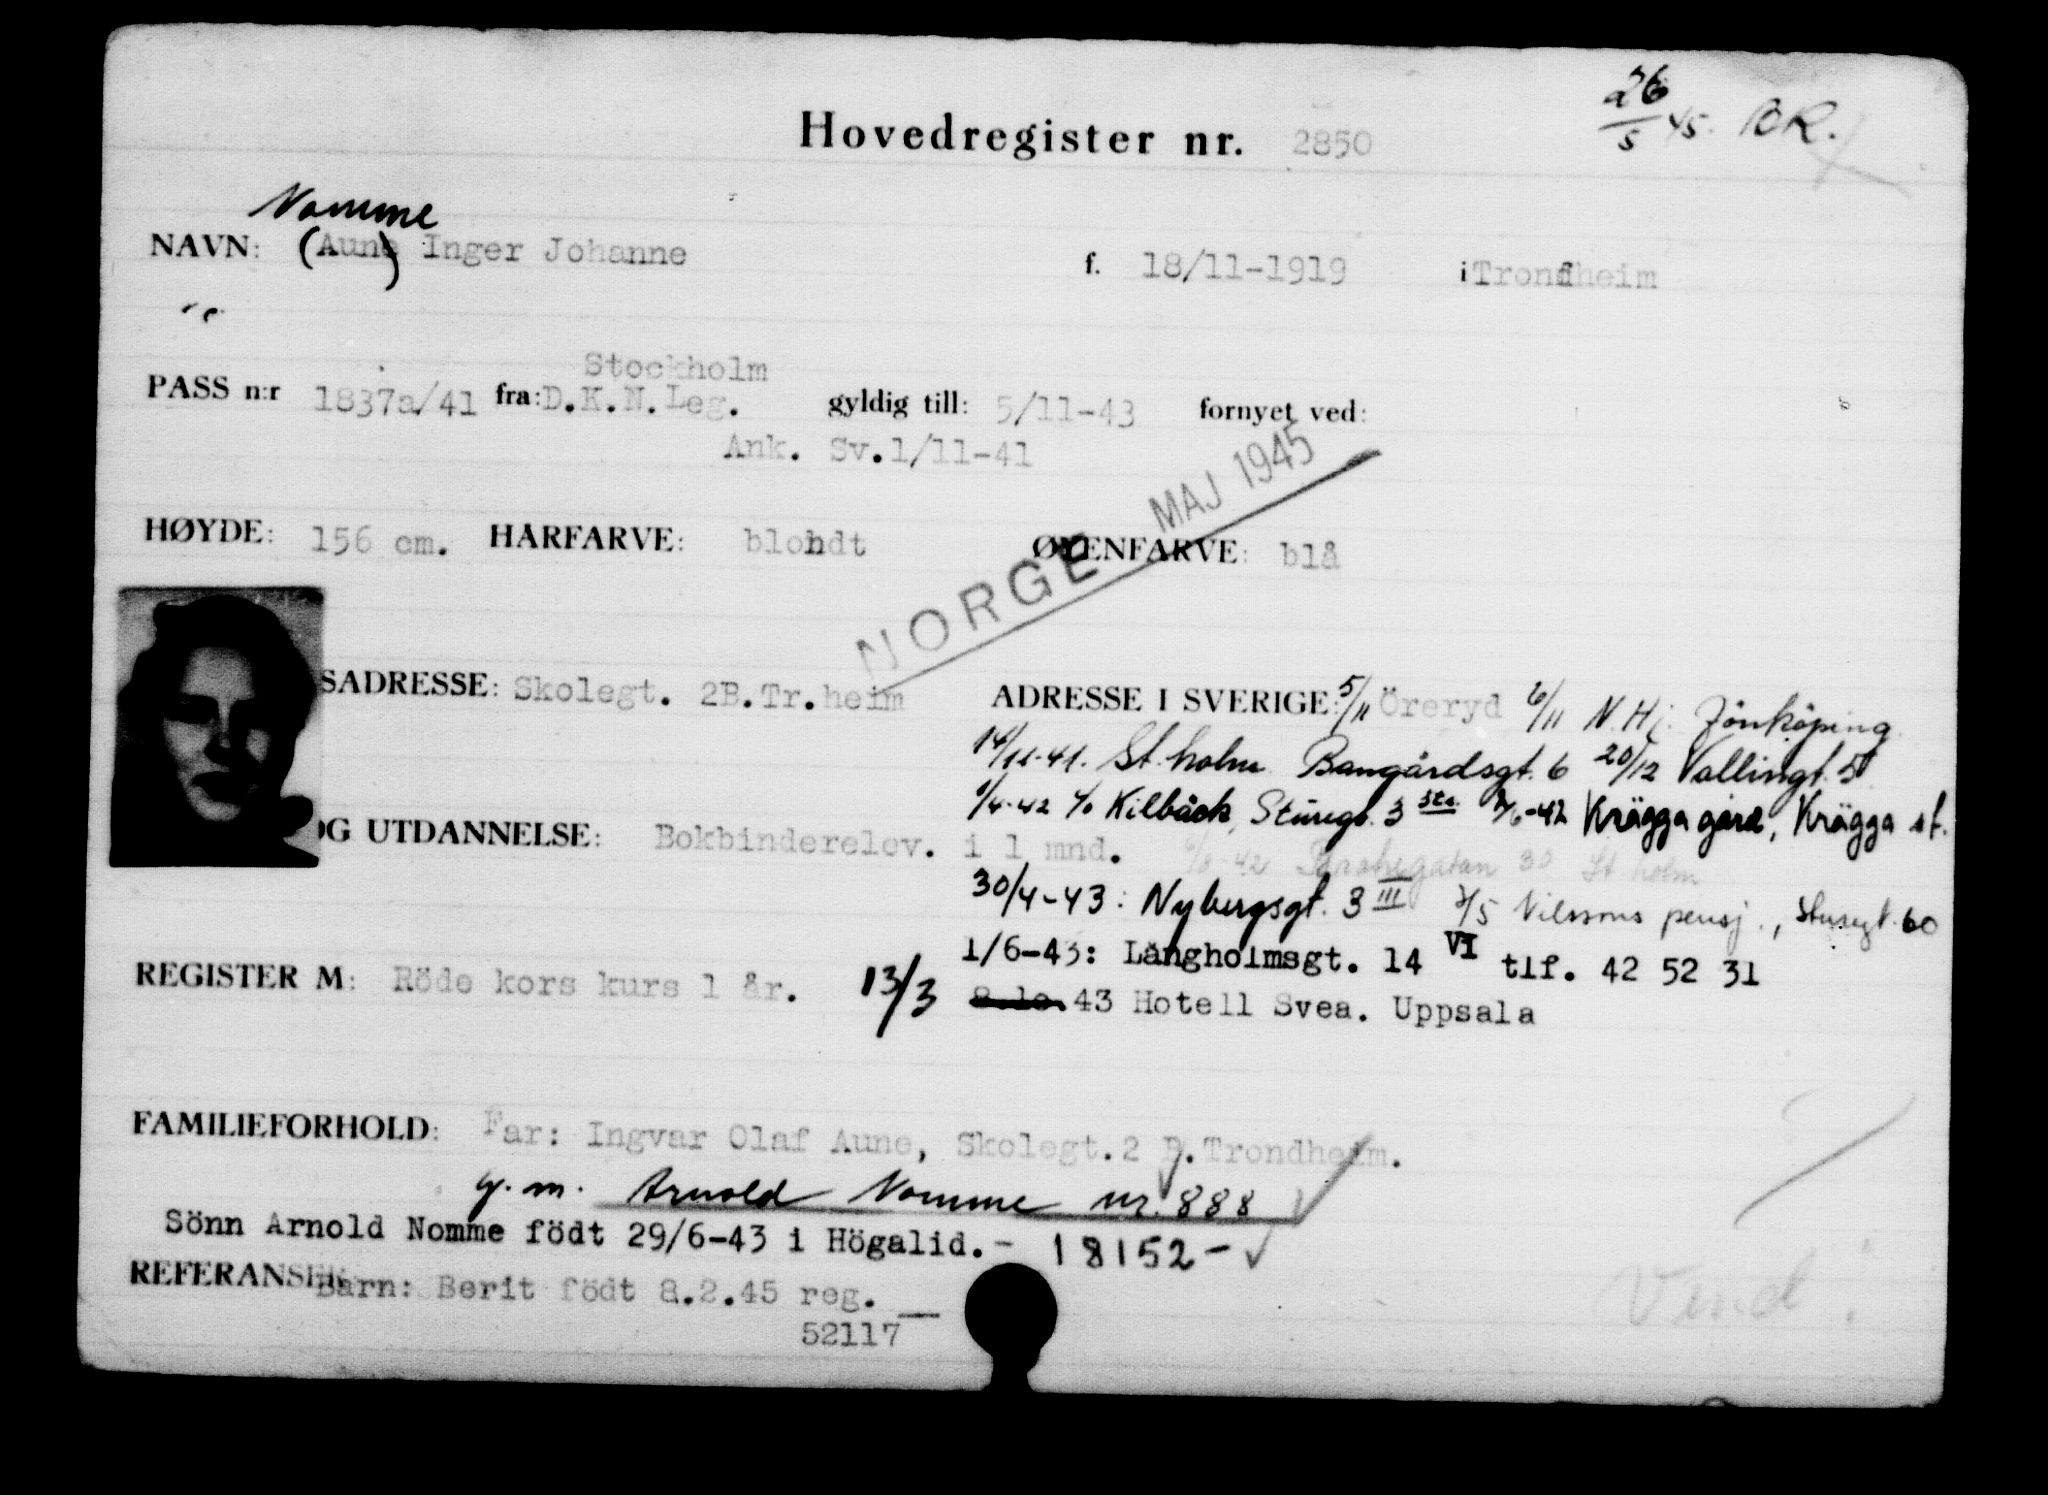 26/5 45. BR.
Hovedregister nr. 2850
Nomme
NAVN: (Aune) Inger Johanne f. 18/11-1919 i Trondheim
Stockholm
PASS n:r 1837a/41 fra: D.K.N.Leg. gyldig till: 5/11-43 fornyet ved:
Ank. Sv.1/11-41
NORGE MAJ 1945
HØYDE: 156 cm. HÅRFARVE: blondt ØYENFARVE: blå
SADRESSE: Skolegt. 2B.Tr.heim ADRESSE I SVERIGE: 5/11 Öreryd 6/11 N.Hj. Jönköping
14/11-41. St.holm Bangårdsgt. 6 20/12 Vallingt. 5
1/4-42 c/o Kilbäck, Sturegt. 3 /6-42 Krägga gård, Krägga st.
OG UTDANNELSE: Bokbinderelev. i 1 mnd.
/8-42 30 St holm
30/4-43: Nybergsgt. 3 III /5 Nilssons pensj., Sturegt. 60
1/6-43: Långholmsgt. 14 VI tlf. 42 52 31
REGISTER M: Röde kors kurs 1 år. 13/3 8.10.43 Hotell Svea. Uppsala
FAMILIEFORHOLD: Far: Ingvar Olaf Aune, Skolegt.2 B.Trondheim.
g.m. Arnold Nomme nr. 888
Sönn Arnold Nomme födt 29/6-43 i Högalid.- 18152-
REFERANSER Barn: Berit födt 8.2.45 reg.
52117
Vend!